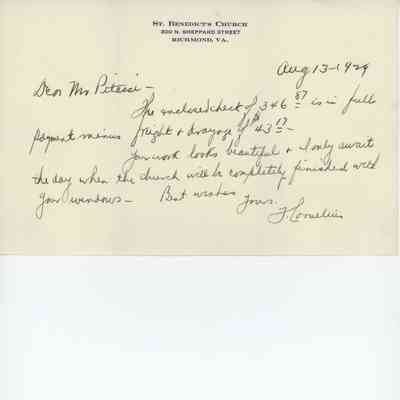 St. Benedict's Church
300 N. Sheppard Street
Richmond, Va.
Aug 13-1929
Dear Mr Pitassi-
The enclosed check of $346 87 is in full
payment minus freight & drayage of $43 17-
Your work looks beautiful & I only await
the day when the church will be completely finished with
your windows- Best wishes
Yours.
F. Cornelius